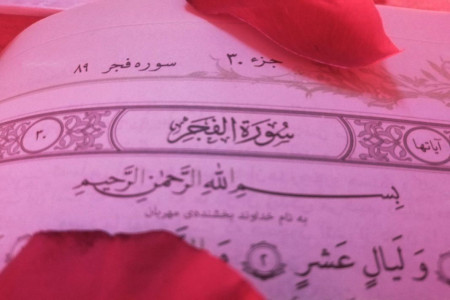 جزء ۳۰ سوره فجر ۸۹
آیاتها سُورَةُ الفَجرِ ۳۰
بِسمِ اللهِ الرَّحمٰنِ الرَّحیمِ
به نام خداوند بخشنده‌ی مهربان
وَ لَیَالٍ عَشرٍ ۲